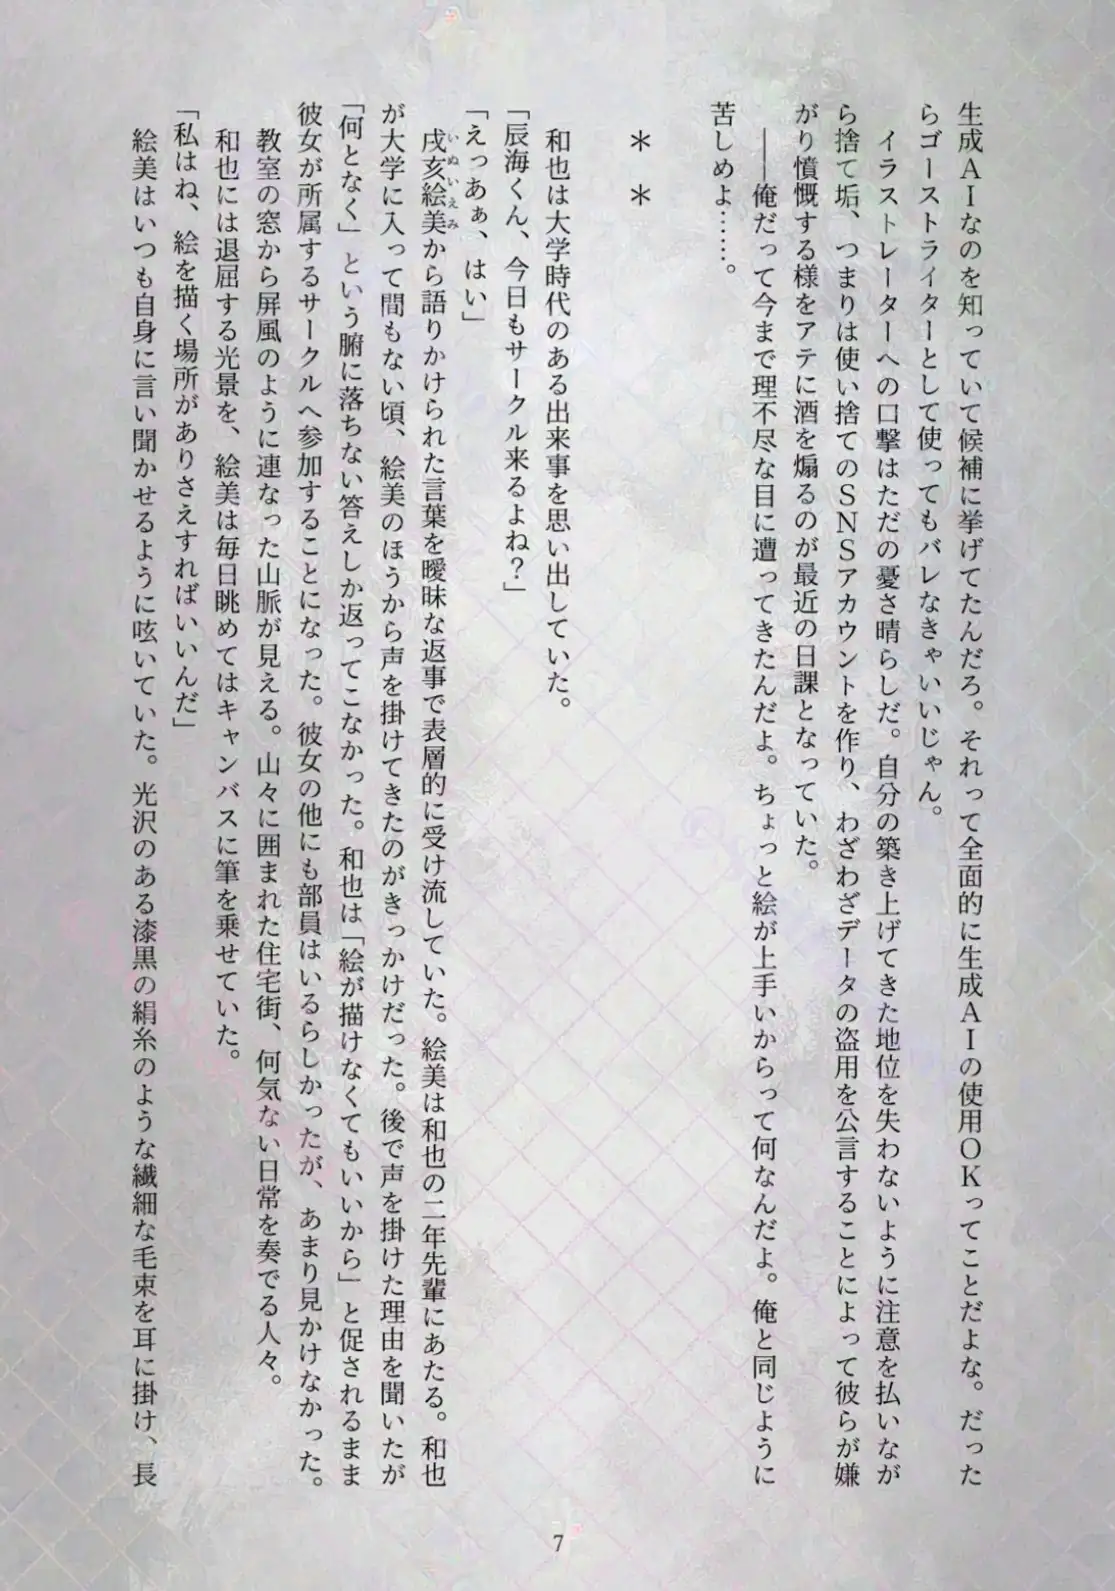 生成ＡＩなのを知っていて候補に挙げてたんだろ。それって全面的に生成ＡＩの使用ＯＫってことだよな。だった
らゴーストライターとして使ってもバレなきゃいいじゃん。
イラストレーターへの口撃はただの憂さ晴らしだ。自分の築き上げてきた地位を失わないように注意を払いなが
ら捨て垢、つまりは使い捨てのＳＮＳアカウントを作り、わざわざデータの盗用を公言することによって彼らが嫌
がり憤慨する様をアテに酒を煽るのが最近の日課となっていた。
――俺だって今まで理不尽な目に遭ってきたんだよ。ちょっと絵が上手いからって何なんだよ。俺と同じように
苦しめよ……。
＊　＊
和也は大学時代のある出来事を思い出していた。
「辰海くん、今日もサークル来るよね？」
「えっあぁ、はい」
戌亥絵美から語りかけられた言葉を曖昧な返事で表層的に受け流していた。絵美は和也の二年先輩にあたる。和也
いぬいえみ
が大学に入って間もない頃、絵美のほうから声を掛けてきたのがきっかけだった。後で声を掛けた理由を聞いたが
「何となく」という腑に落ちない答えしか返ってこなかった。和也は「絵が描けなくてもいいから」と促されるまま
彼女が所属するサークルへ参加することになった。彼女の他にも部員はいるらしかったが、あまり見かけなかった。
教室の窓から屏風のように連なった山脈が見える。山々に囲まれた住宅街、何気ない日常を奏でる人々。
和也には退屈する光景を、絵美は毎日眺めてはキャンバスに筆を乗せていた。
「私はね、絵を描く場所がありさえすればいいんだ」
絵美はいつも自身に言い聞かせるように呟いていた。光沢のある漆黒の絹糸のような繊細な毛束を耳に掛け、長
7